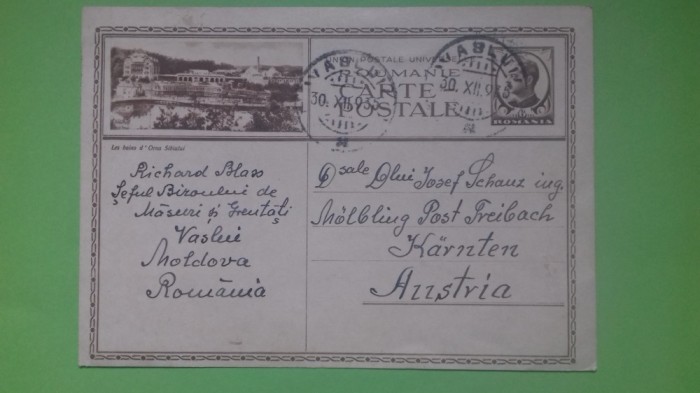 UNION POSTALE UNIVERSELLE
ROUMANIE
CARTE
POSTALE
VASLUI
30. XII. 935
VASLUI
30. XII. 935
ROMANIA
Les bains d'Ocna Sibiului
Richard Blass
Șeful Biroului de
Măsuri și Greutăți
Vaslui
Moldova
România
Dsale Dlui Josef Schanz ing.
Mölbling Post Treibach
Kärnten
Austria